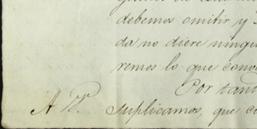 debemos omitir y
da no diere ningu
remos lo que cono
Por tant
A V.
suplicamos, que c